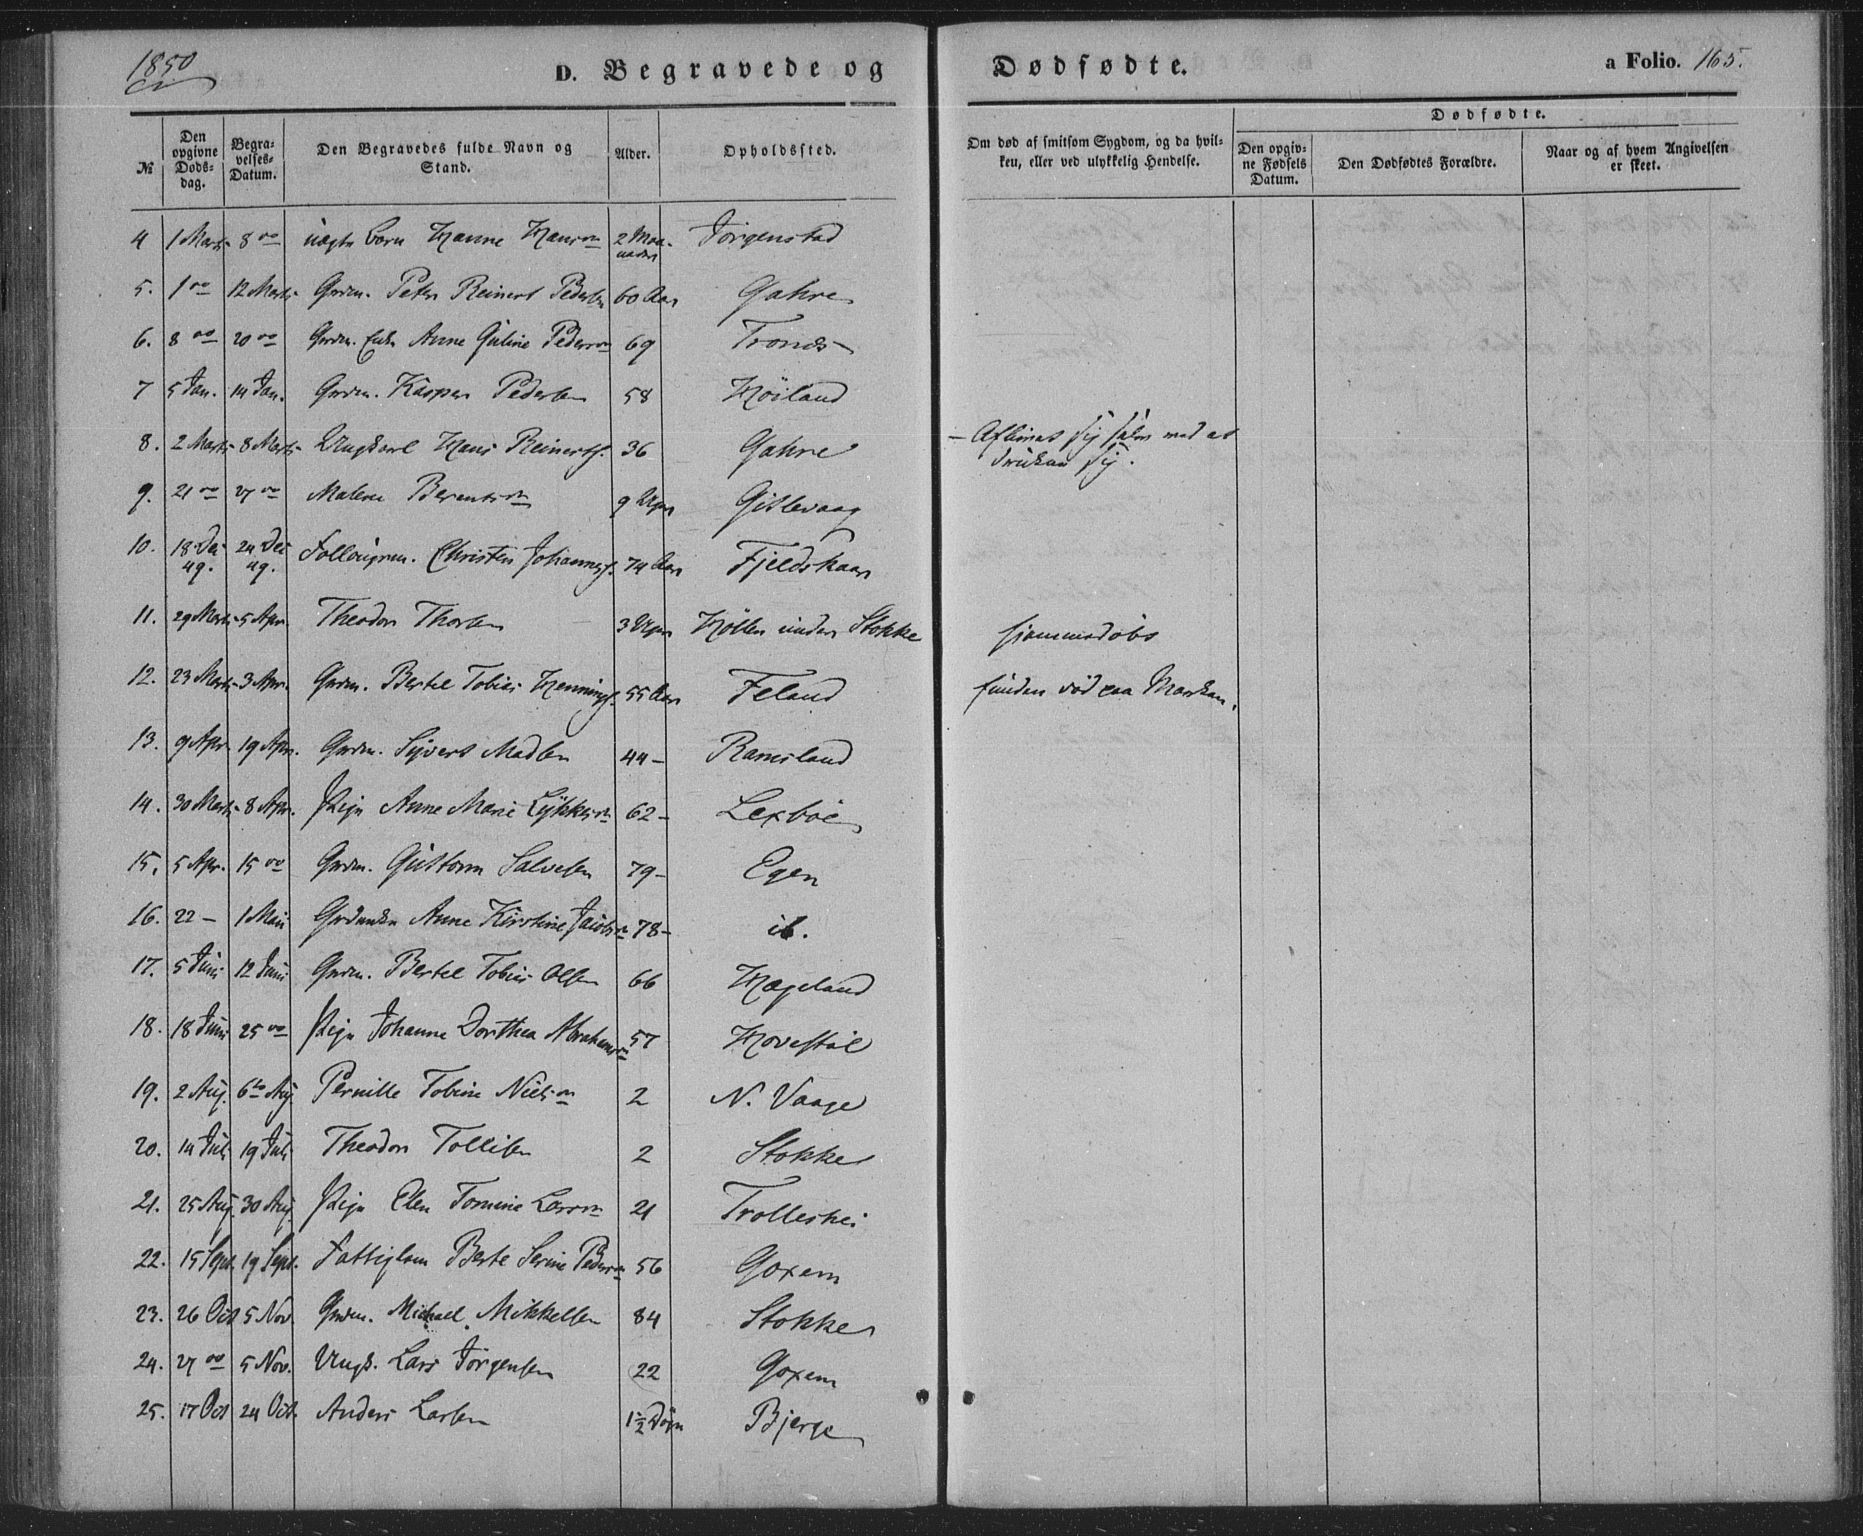 1850
D. Begravede og Dødfødte.
a Folio. 165.
№
Den opgivne Døds-dag.
Begra-velses-Datum.
Den Begravedes fulde Navn og Stand.
Alder.
Opholdssted.
Om død af smitsom Sygdom, og da hvil-ken, eller ved ulykkelig Hendelse.
Dødfødte.
Den opgiv-ne Fødsels Datum.
Den Dødfødtes Forældre.
Naar og af hvem Angivelsen er skeet.
4 1 Marts 8 do uægte barn Hanne Hansdn 2 Maa-neder Jørgenstad
5. 1 do 12 Marts Grdm. Peter Reinert Pedersen 60 Aar Gahre
6. 8 do 20 do Grdm. Enke Anne Guline Pedersdn 69 Tronds
7 5 Jan. 14 Jan. Grdm. Kasper Pedersen 58 Høiland
8. 2 Marts 8 Marts Ungkarl Hans Reinerts. 36 Gahre – Aflivet sig selv med at
drukne sig.
9. 21 do 27 do Malene Berentsdn 9 Uger Gislevaag
10. 18 Dec 49. 24 Dec 49. Christen Johannes. 74 Aar Fjeldskaar
11. 29 Marts 5 Apr. Theodor Thorsen 3 Uger Høllen under Stokke hjemmedøbt
12. 23 Marts 3 Apr. Grdm. Bertel Tobias Hennings. 55 Aar Feland funden død paa Marken.
13. 9 Apr. 19 Apr. Grdm. Syvert Madsen 44 – Ramsland
14. 30 Marts 8 Apr. Pige Anne Marie Lykkesdn 62 – Lexbøe
15. 5 Apr. 15 do Grdm. Guttorm Salvesen 79 – Egen
16. 22 – 1 Mai Grdmenke Anne Kirstine Jacobsdn 78 – ib.
17. 5 Juni 12 Juni Grdm. Bertel Tobias Olsen 66 Hægeland
18. 18 Juni 25 do Pige Johanne Dorthea Abrahamsdn 57 Hovestøl
19. 2 Aug. 6te Aug. Pernille Tobine Nielsdn 2 N. Vaage
20. 14 Juli 19 Juli Theodor Tollisen 2 Stokke
21. 25 Aug. 30 Aug. Pige Elen Tomine Larsdn 21 Trolleshei
22. 15 Sept. 19 Sept. Fattiglem Berte Serine Pedersdn 56 Goxem
23. 26 Oct 5 Nov. Grdm. Michael Mikkelsen 84 Stokke
24. 27 do 5 Nov. Ungk. Lars Jørgensen 22 Goxem
25. 17 Oct 24 Oct. Anders Larsen 1½ Døgn Bjerge